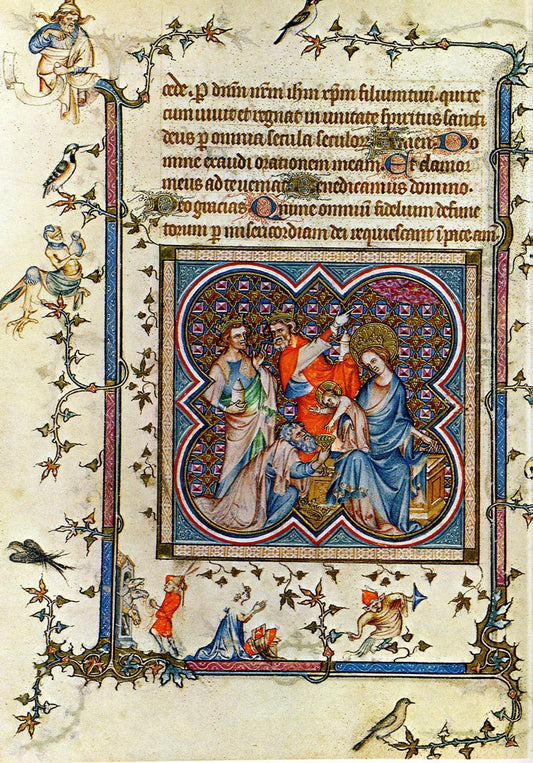 cede. p dnm nrm ihm xpm filium tuū. qui te
cum uiuit et regnat in unitate spiritus sancti
deus p omnia secula seculor. Amen. Do
mine exaudi orationem meam. Et clamor
meus ad te ueniat. Benedicamus domino.
Deo gracias. Anime omniū fidelium defunc
torum p misericordiam dei requiescant ī pace am